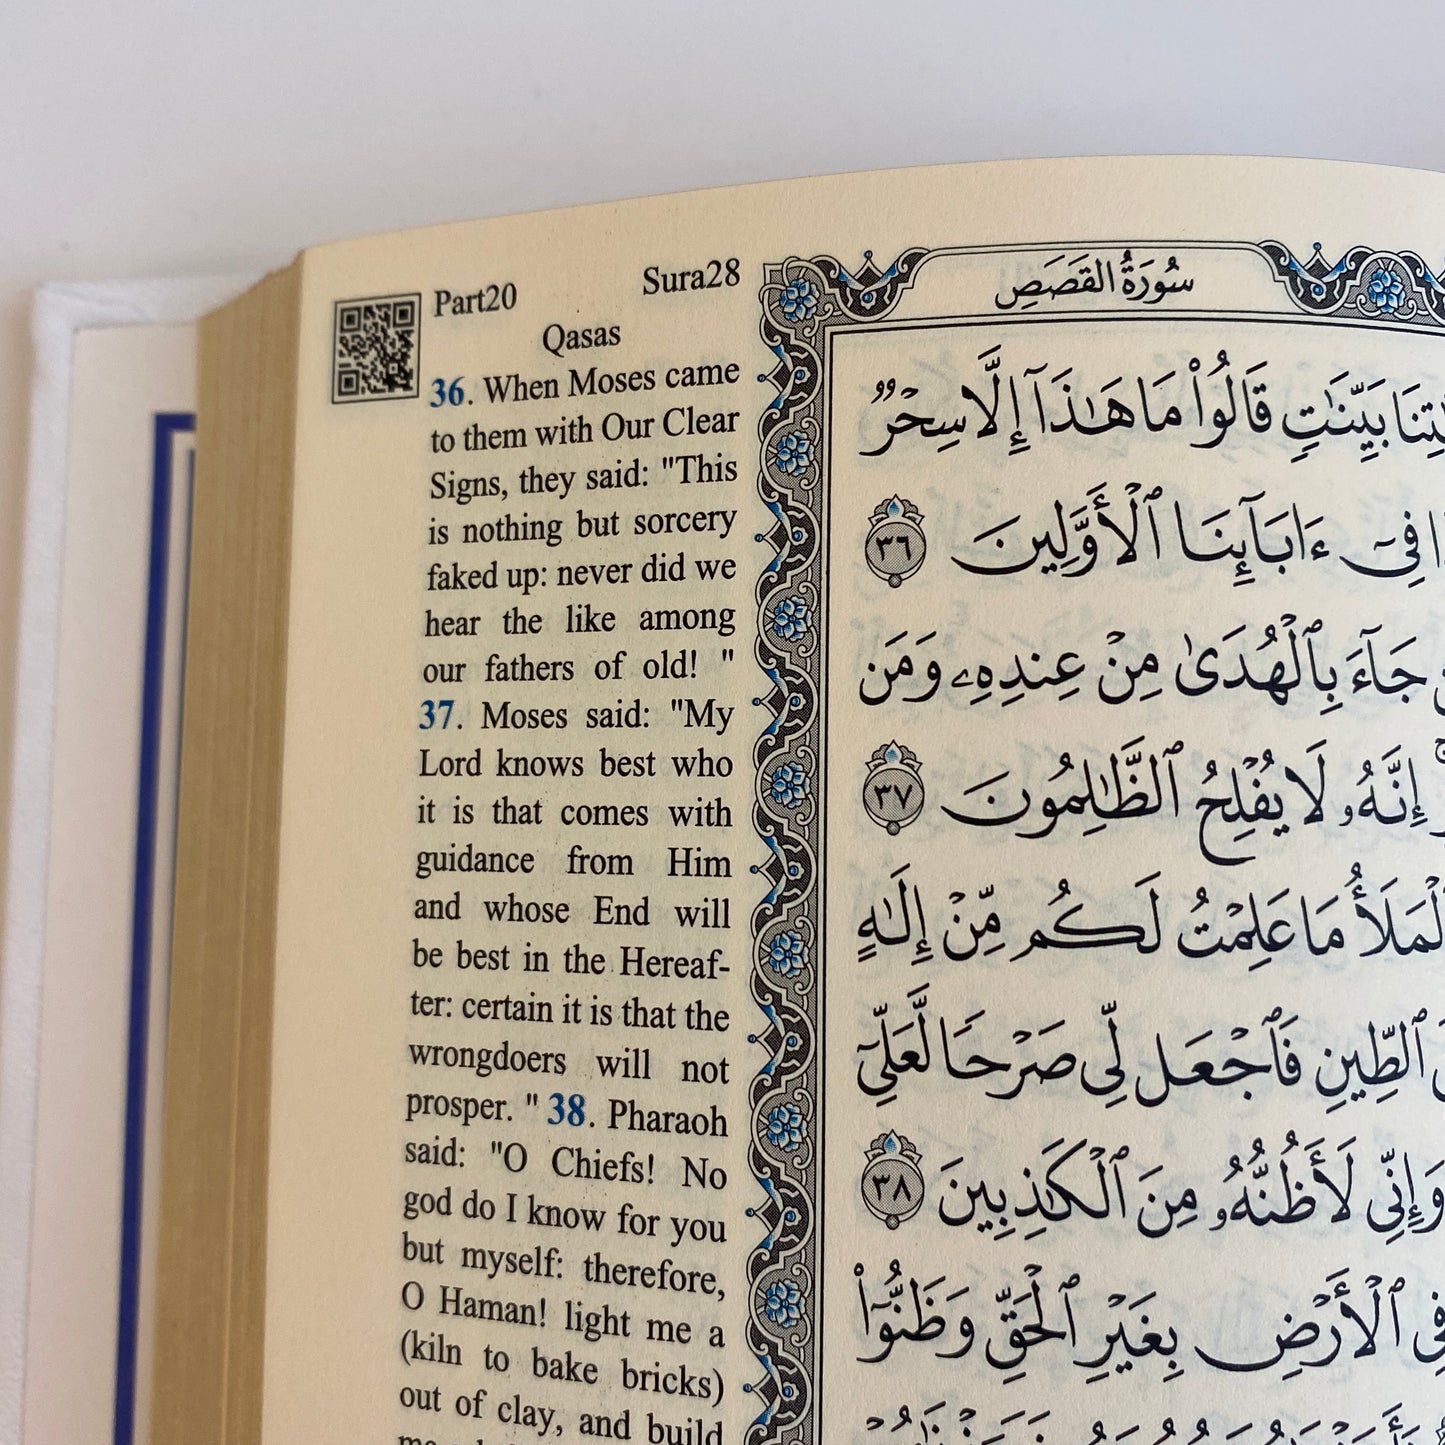 Part20 Sura28
Qasas
36. When Moses came
to them with Our Clear
Signs, they said: "This
is nothing but sorcery
faked up: never did we
hear the like among
our fathers of old! "
37. Moses said: "My
Lord knows best who
it is that comes with
guidance from Him
and whose End will
be best in the Hereaf-
ter: certain it is that the
wrongdoers will not
prosper. " 38. Pharaoh
said: "O Chiefs! No
god do I know for you
but myself: therefore,
O Haman! light me a
(kiln to bake bricks)
out of clay, and build
سُورَةُ القَصَصِ
بَيِّنَٰتٍ قَالُوا۟ مَا هَٰذَآ إِلَّا سِحْرٌ
فِىٓ ءَابَآئِنَا ٱلْأَوَّلِينَ ٣٦
جَآءَ بِٱلْهُدَىٰ مِنْ عِندِهِۦ وَمَن
إِنَّهُۥ لَا يُفْلِحُ ٱلظَّٰلِمُونَ ٣٧
ٱلْمَلَأُ مَا عَلِمْتُ لَكُم مِّنْ إِلَٰهٍ
ٱلطِّينِ فَٱجْعَل لِّى صَرْحًا لَّعَلِّىٓ
وَإِنِّى لَأَظُنُّهُۥ مِنَ ٱلْكَٰذِبِينَ ٣٨
فِى ٱلْأَرْضِ بِغَيْرِ ٱلْحَقِّ وَظَنُّوٓا۟